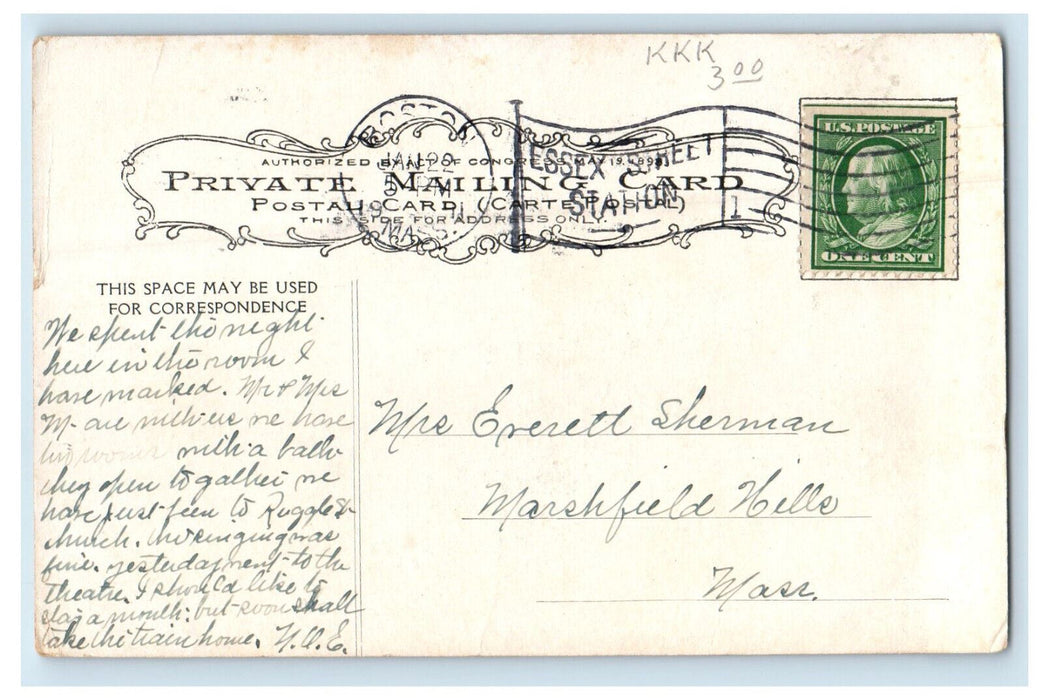 KKK
3.00
BOSTON
JAN 22
5 PM
MASS.
ESSEX STREET
STATION
1
U.S. POSTAGE
ONE CENT
AUTHORIZED BY ACT OF CONGRESS, MAY 19, 1898.
PRIVATE MAILING CARD
POSTAL CARD (CARTE POSTAL)
THIS SIDE FOR ADDRESS ONLY.
THIS SPACE MAY BE USED
FOR CORRESPONDENCE
We spent the night
here in the room I
have marked. Mr & Mrs
M- are with us we have
two rooms with a bath
they open together we
have just been to Ruggles St
church. the singing was
fine. yesterday went to the
theatre. I should like to
stay a month: but soon shall
take the train home. N.O.E.
Mrs Everett Sherman
Marshfield Hills
Mass.